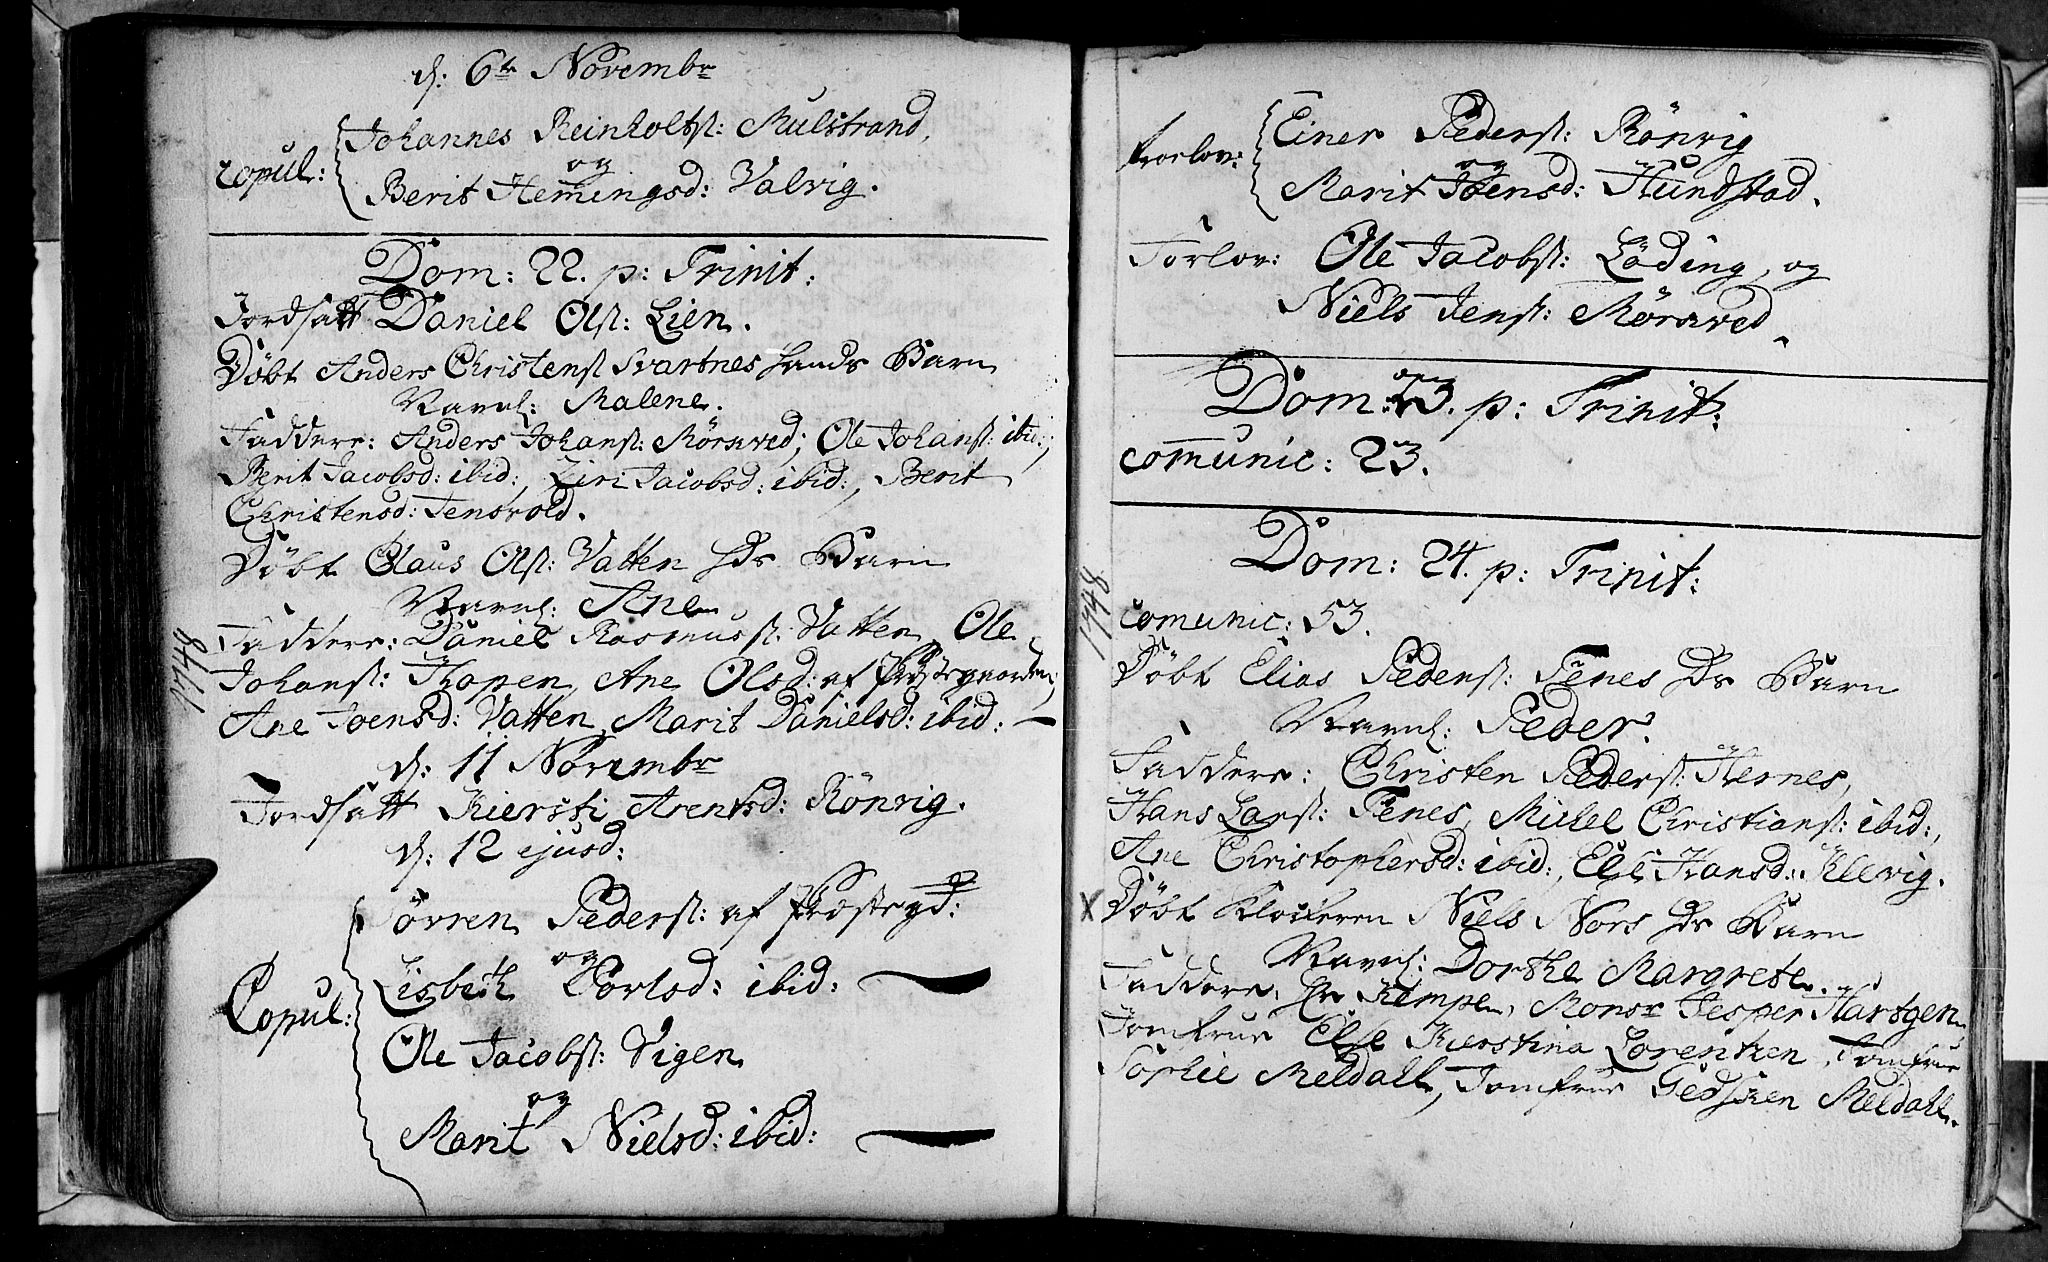 d: 6te Novembr
Johannes Reinholtsf: Mulstrand,
copul: og
Berit Hemingsd: Valvig.
Dom: 22. p: Trinit:
Jordsatt Daniel Olsf: Lien.
Döbt Anders Christensf Svartnes hands Barn
Navnl: Malene.
Faddere: Anders Johansf: Mörsved; Ole Johansf: ibid:,
Berit Jacobsd: ibid:, Ziri Jacobsd: ibid:, Berit
Christensd: Jensvold.
Döbt Claus Olsf: Vatten Hs Barn
Navnl: Ane
Faddere: Daniel Rasmussf: Vatten, Ole
Johansf: Kopen, Ane Olsd: af Præstegaarden,
Ane Joensd: Vatten, Marit Danielsd: ibid:
1748
d: 11 Novembr
Jordsatt Kiersti Arentsd: Rönvig.
d: 12 ejusd:
Sörren Pedersf: af Præstegd:
og
Lisbeth Porlsd: ibid:
Copul:
Ole Jacobsf: Vigen
og
Marit Nielsd: ibid:
Einer Pedersf: Rönvig
troelov: og
Marit Joensd: Hundstad.
Forlov: Ole Jacobsf: Löding, og
Niels Jensf: Mörsved.
Dom: 23. p: Trinit:
comunic: 23.
Dom: 24. p: Trinit:
1748
comunic: 53.
Döbt Elias Pedersf: Tenes Hs Barn
Navnl: Peder.
Faddere: Christen Pedersf: Hernes,
Hans Larsf: Tenes, Michel Christiansf: ibid:,
Ane Christophersd: ibid:, Else Hansd: Klevig.
X Döbt Klockeren Niels Nors Hs Barn
Navnl: Dorthe Margrete.
Faddere, Hr Kempe, Monsr Jesper Hartgen,
Jomfrue Else Kierstina Lorentzen, Jomfrue
Sophie Meldahl, Jomfrue Gedsken Meldahl.